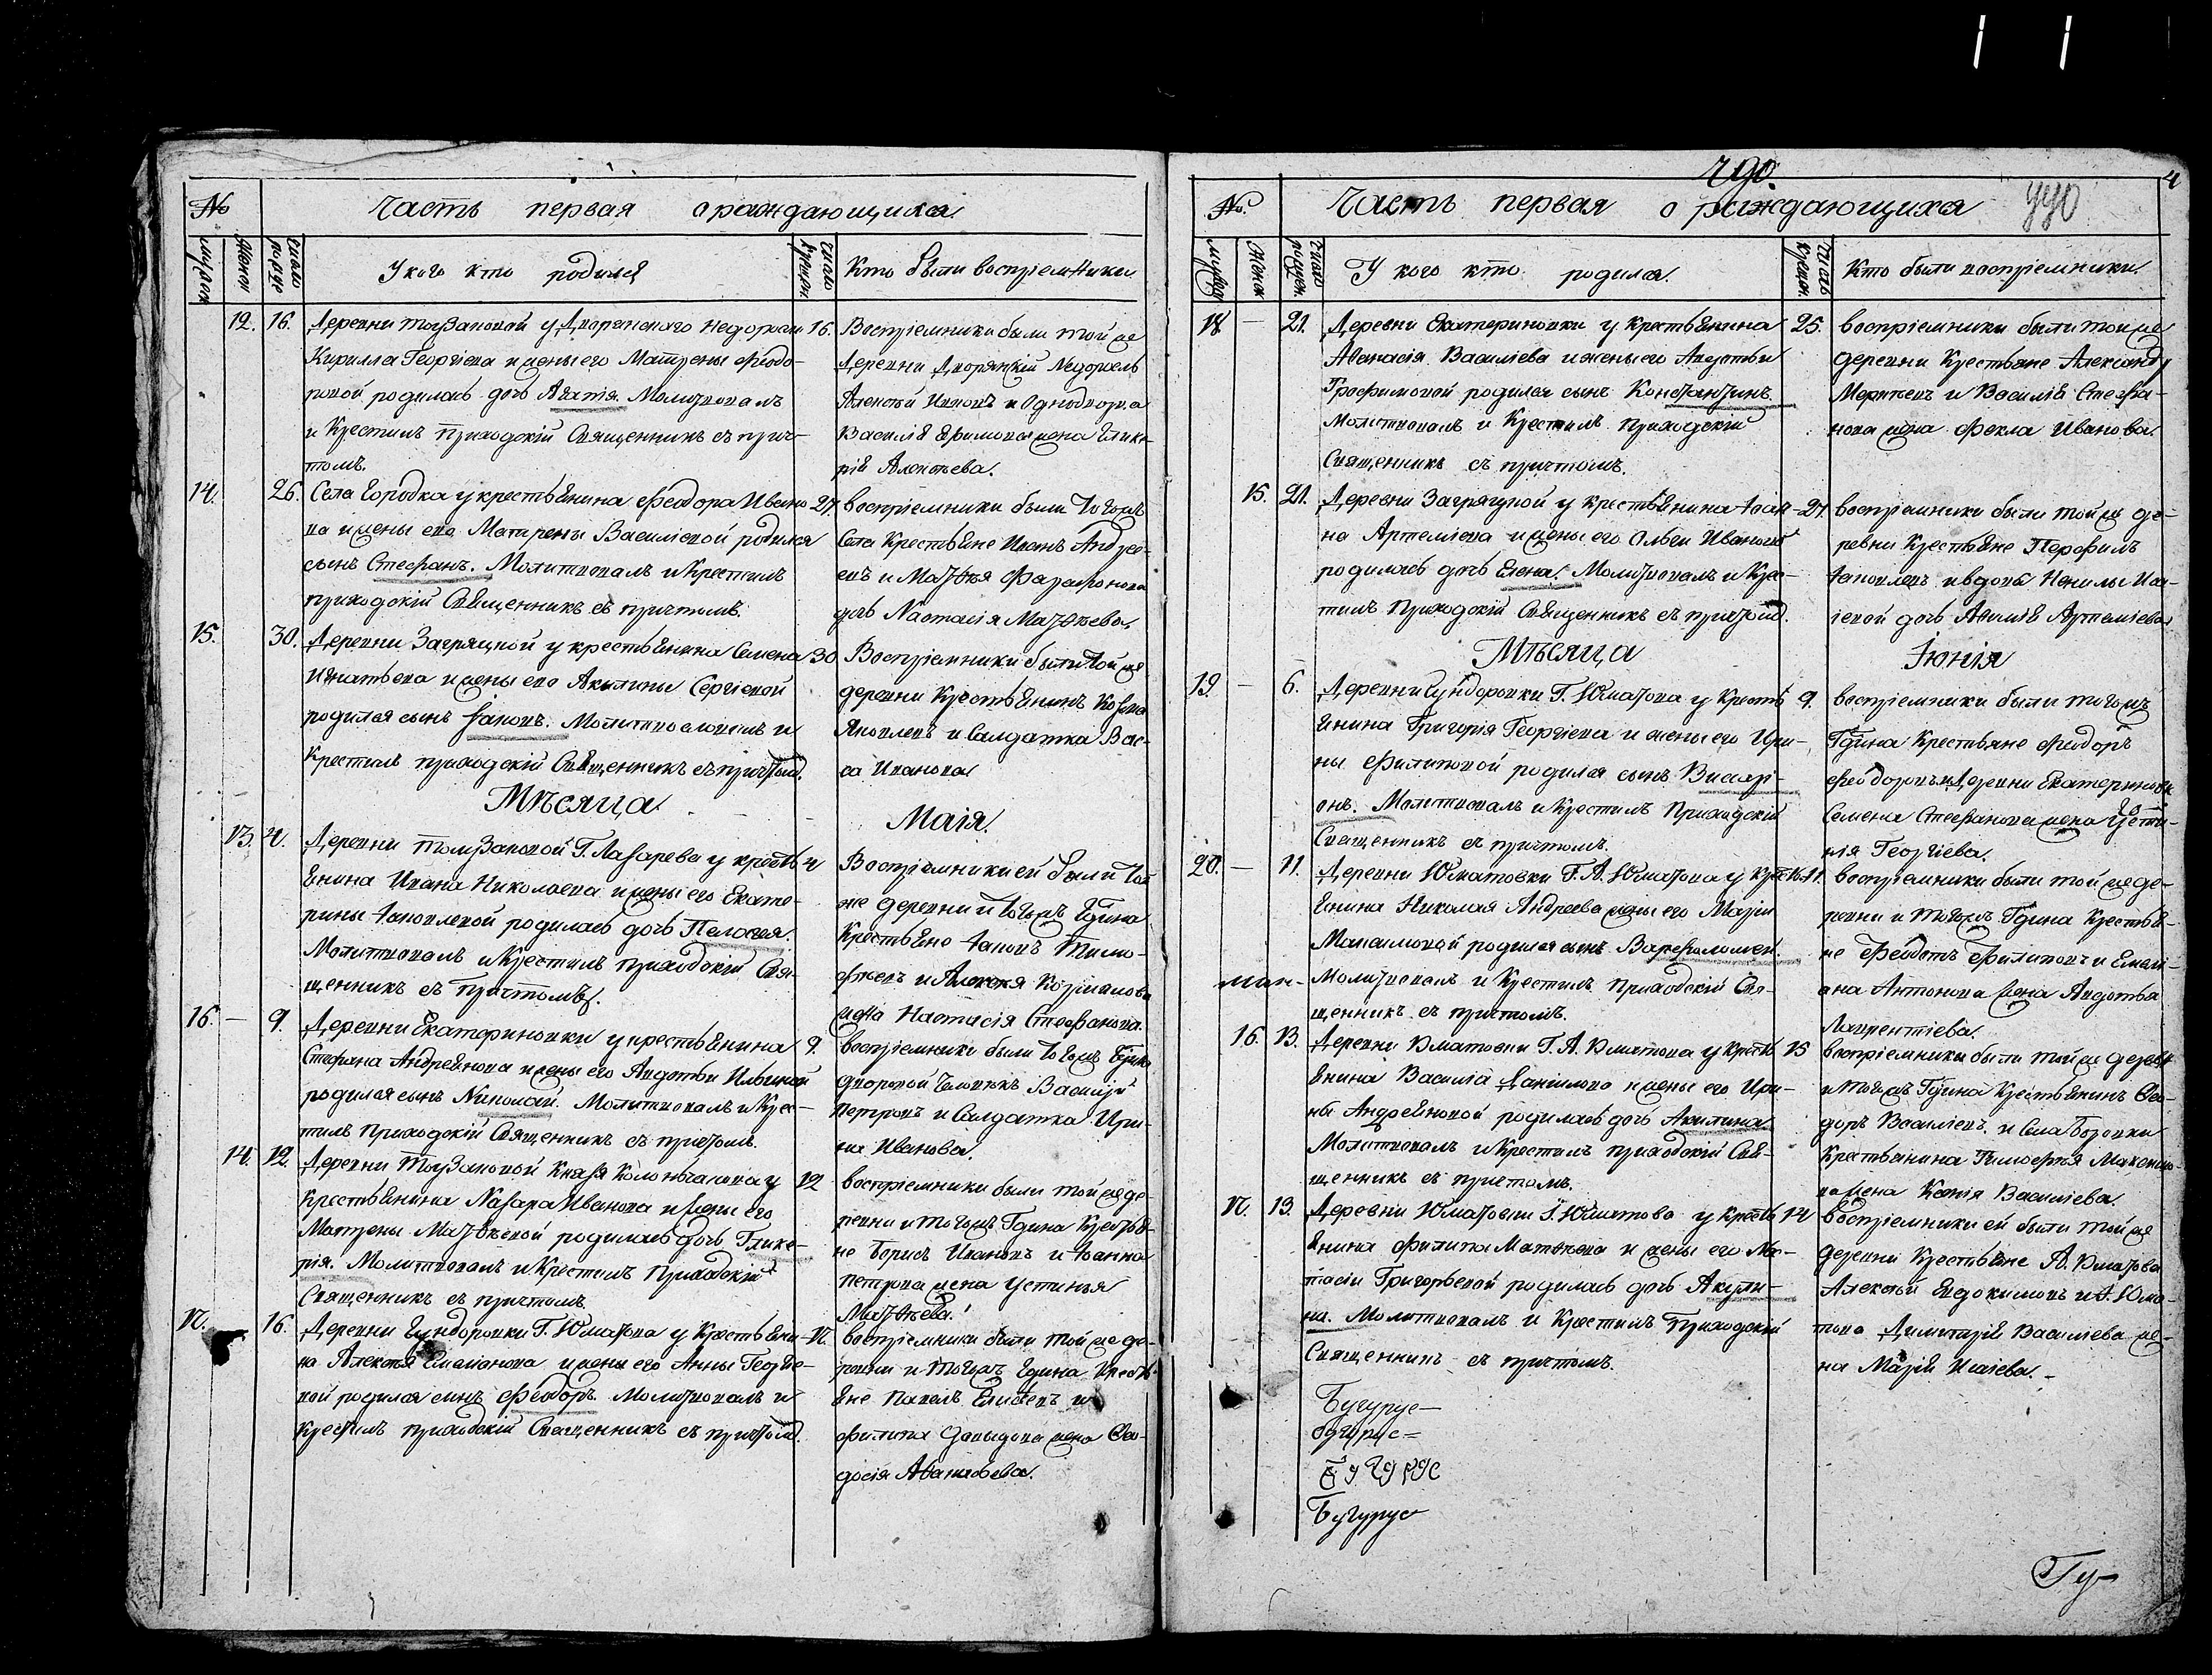 № Часть первая о раждающихся
мужеск женск число рожде У кого кто родился число крещен. Кто были воспріемники
12. 16. Деревни у Дворянскаго недоросля
Кирилла Георгіева и жены его Матрены Феодо-
ровой родилась дочь Агафія. Молитвовалъ
и Крестилъ приходскій Священникъ съ прич-
томъ.
16. Воспріемники были той же
деревни Дворянскій Недоросль
Алексѣй Ивановъ и Однодворца
Василія Ефимова жена Глике-
рія Алексѣева.
14. 26. Села Городка у крестьянина Феодора Ивано-
ва и жены его Матрены Василіевой родился
сынъ Стефанъ. Молитвовалъ и Крестилъ
приходскій Священникъ съ причтомъ.
27. воспріемники были тогожъ
Села Крестьяне Иванъ Андре-
евъ и Матвѣя Фарафонова
дочь Настасія Матвѣева.
15. 30. Деревни Загряцкой у крестьянина Семена
Игнатьева и жены его Акилины Сергіевой
родился сынъ Іаковъ. Молитвословилъ и
Крестилъ приходскій Священникъ съ причтом.
30 Воспріемники были той же
деревни Крестьянинъ Козма
Яковлевъ и Солдатка Вас-
са Иванова
Мѣсяца Маія.
13. 4. Деревни Г. Лазарева у кресть-
янина Ивана Николаева и жены его Екате-
рины Іаковлевой родилась дочь Пелагея.
Молитвовалъ и Крестилъ приходскій Свя-
щенникъ съ Причтомъ.
4 Воспріемники ей были той
же деревни и тогожъ Гдина
Крестьяне Іаковъ Тимо-
фѣевъ и Алексѣя Козмианова
жена Настасія Стефанова.
16. — 9. Деревни Екатериновки у крестьянина
Стефана Андреянова и жены его Авдотьи Ильиной
родился сынъ Николай. Молитвовалъ и Крес-
тилъ приходскій Священникъ съ причтомъ.
9. воспріемники были тогожъ Гдина
дворовой человѣкъ Василій
Петровъ и Солдатка Ири-
на Иванова.
14. 12. Деревни Князя у
Крестьянина Назара Иванова и жены его
Матрены Матвѣевой родилась дочь Глике-
рія. Молитвовалъ и Крестилъ Приходскій
Священникъ съ причтомъ.
12 воспріемники были той же де-
ревни и тогожъ Гдина Крестья-
не Борисъ Ивановъ и Іоанна
Петрова жена Устинья
Матвѣева.
17. 16. Деревни Гундоровки Г. Юматова у Крестьяни-
на Алексѣя Емеліанова и жены его Анны Георгіе-
вой родился сынъ Феодоръ. Молитвовалъ и
Крестилъ приходскій Священникъ съ причтом.
17. воспріемники были той же де-
ревни и тогожъ Гдина Кресть-
яне Павелъ Елисѣевъ и
Филипа Давыдова жена Фео-
досія Афанасьева.
490.
4
№. Часть первая о раждающихся 440
мужск Женск Число рожден. У кого кто родился. Число Крещен. Кто были воспріемники.
18 — 21. Деревни Екатериновки у крестьянина
Афанасія Василіева и жены его Авдотьи
Трофимовой родился сынъ Константинъ.
Молитвовалъ и Крестилъ Приходскій
Священникъ съ причтомъ.
25. воспріемники были той же
деревни Крестьяне Александр
и Василія Стефа-
нова жена Фекла Иванова.
15. 21. Деревни Загряцкой у крестьянина Іоан-
на Артемиева и жены его Ольги Ивановой
родилась дочь Елена. Молитвовалъ и Крес-
тилъ Приходскій Священникъ съ причтом.
27. воспріемники были той же де-
ревни Крестьяне Перфилъ
Іаковлевъ и вдовы Ненилы Иса-
іевой дочь Артемиева
Мѣсяца Іюнія
19. — 6. Деревни Гундоровки Г. Юматова у Кресть-
янина Григорія Георгіева и жены его Ири-
ны Филиповой родился сынъ Висарі-
онъ. Молитвовалъ и Крестилъ Приходскій
Священникъ съ причтомъ.
9. воспріемники были тогожъ
Гдина Крестьяне Феодоръ
Феодоровъ и Деревни Екатериновки
Семена Стефанова жена Усти-
нія Георгіева.
20. — 11. Деревни Юматовки Г. А. Юматова у Кресть-
янина Николая Андреева жены его Маріи
Максимовой родился сынъ Варфоломей.
Молитвовалъ и Крестилъ Приходскій Свя-
щенникъ съ причтомъ.
11. воспріемники были той же де-
ревни и тогожъ Гдина Крестья-
не Феодотъ Филиповъ и Емели-
ана Антонова жена Авдотья
Лаврентіева.
16. 13. Деревни Юматовки Г. А. Юматова у Кресть-
янина Василія Даніилова и жены его Ири-
ны Андреяновой родилась дочь Акилина
Молитвовалъ и Крестилъ приходскій Свя-
щенникъ съ причтомъ.
15 воспріемники были той же деревни
и тогожъ Гдина Крестьянинъ Фео-
доръ Василіевъ и Села Боровки
Крестьянина Тимофея Максимо-
ва жена Ксенія Василіева.
17. 13. Деревни Юматовки Г. Юматова у Кресть-
янина Филипа Матвѣева и жены его На-
тасіи Григорьевой родилась дочь Акули-
на. Молитвовалъ и Крестилъ Приходскій
Священникъ съ причтомъ.
14 воспріемники ей были той же
деревни Крестьяне А. Юматова
Алексѣй Евдокимовъ и А. Юма-
това Димитрія Василіева же-
на Марія Исаіева.
Бугурус—
бугурус=
Бугурус
Бугурус
Гу-